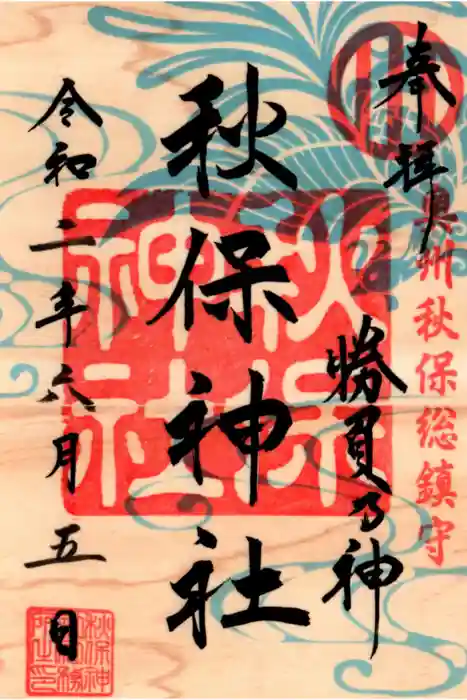 奉拝
奥州秋保総鎮守
勝負乃神
秋保神社
秋保神社
令和二年六月五日